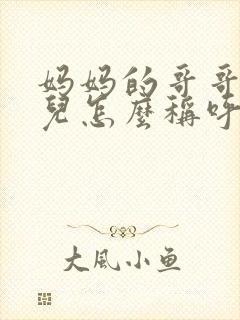 妈妈的哥哥
兒怎麼稱呼
大風小鱼